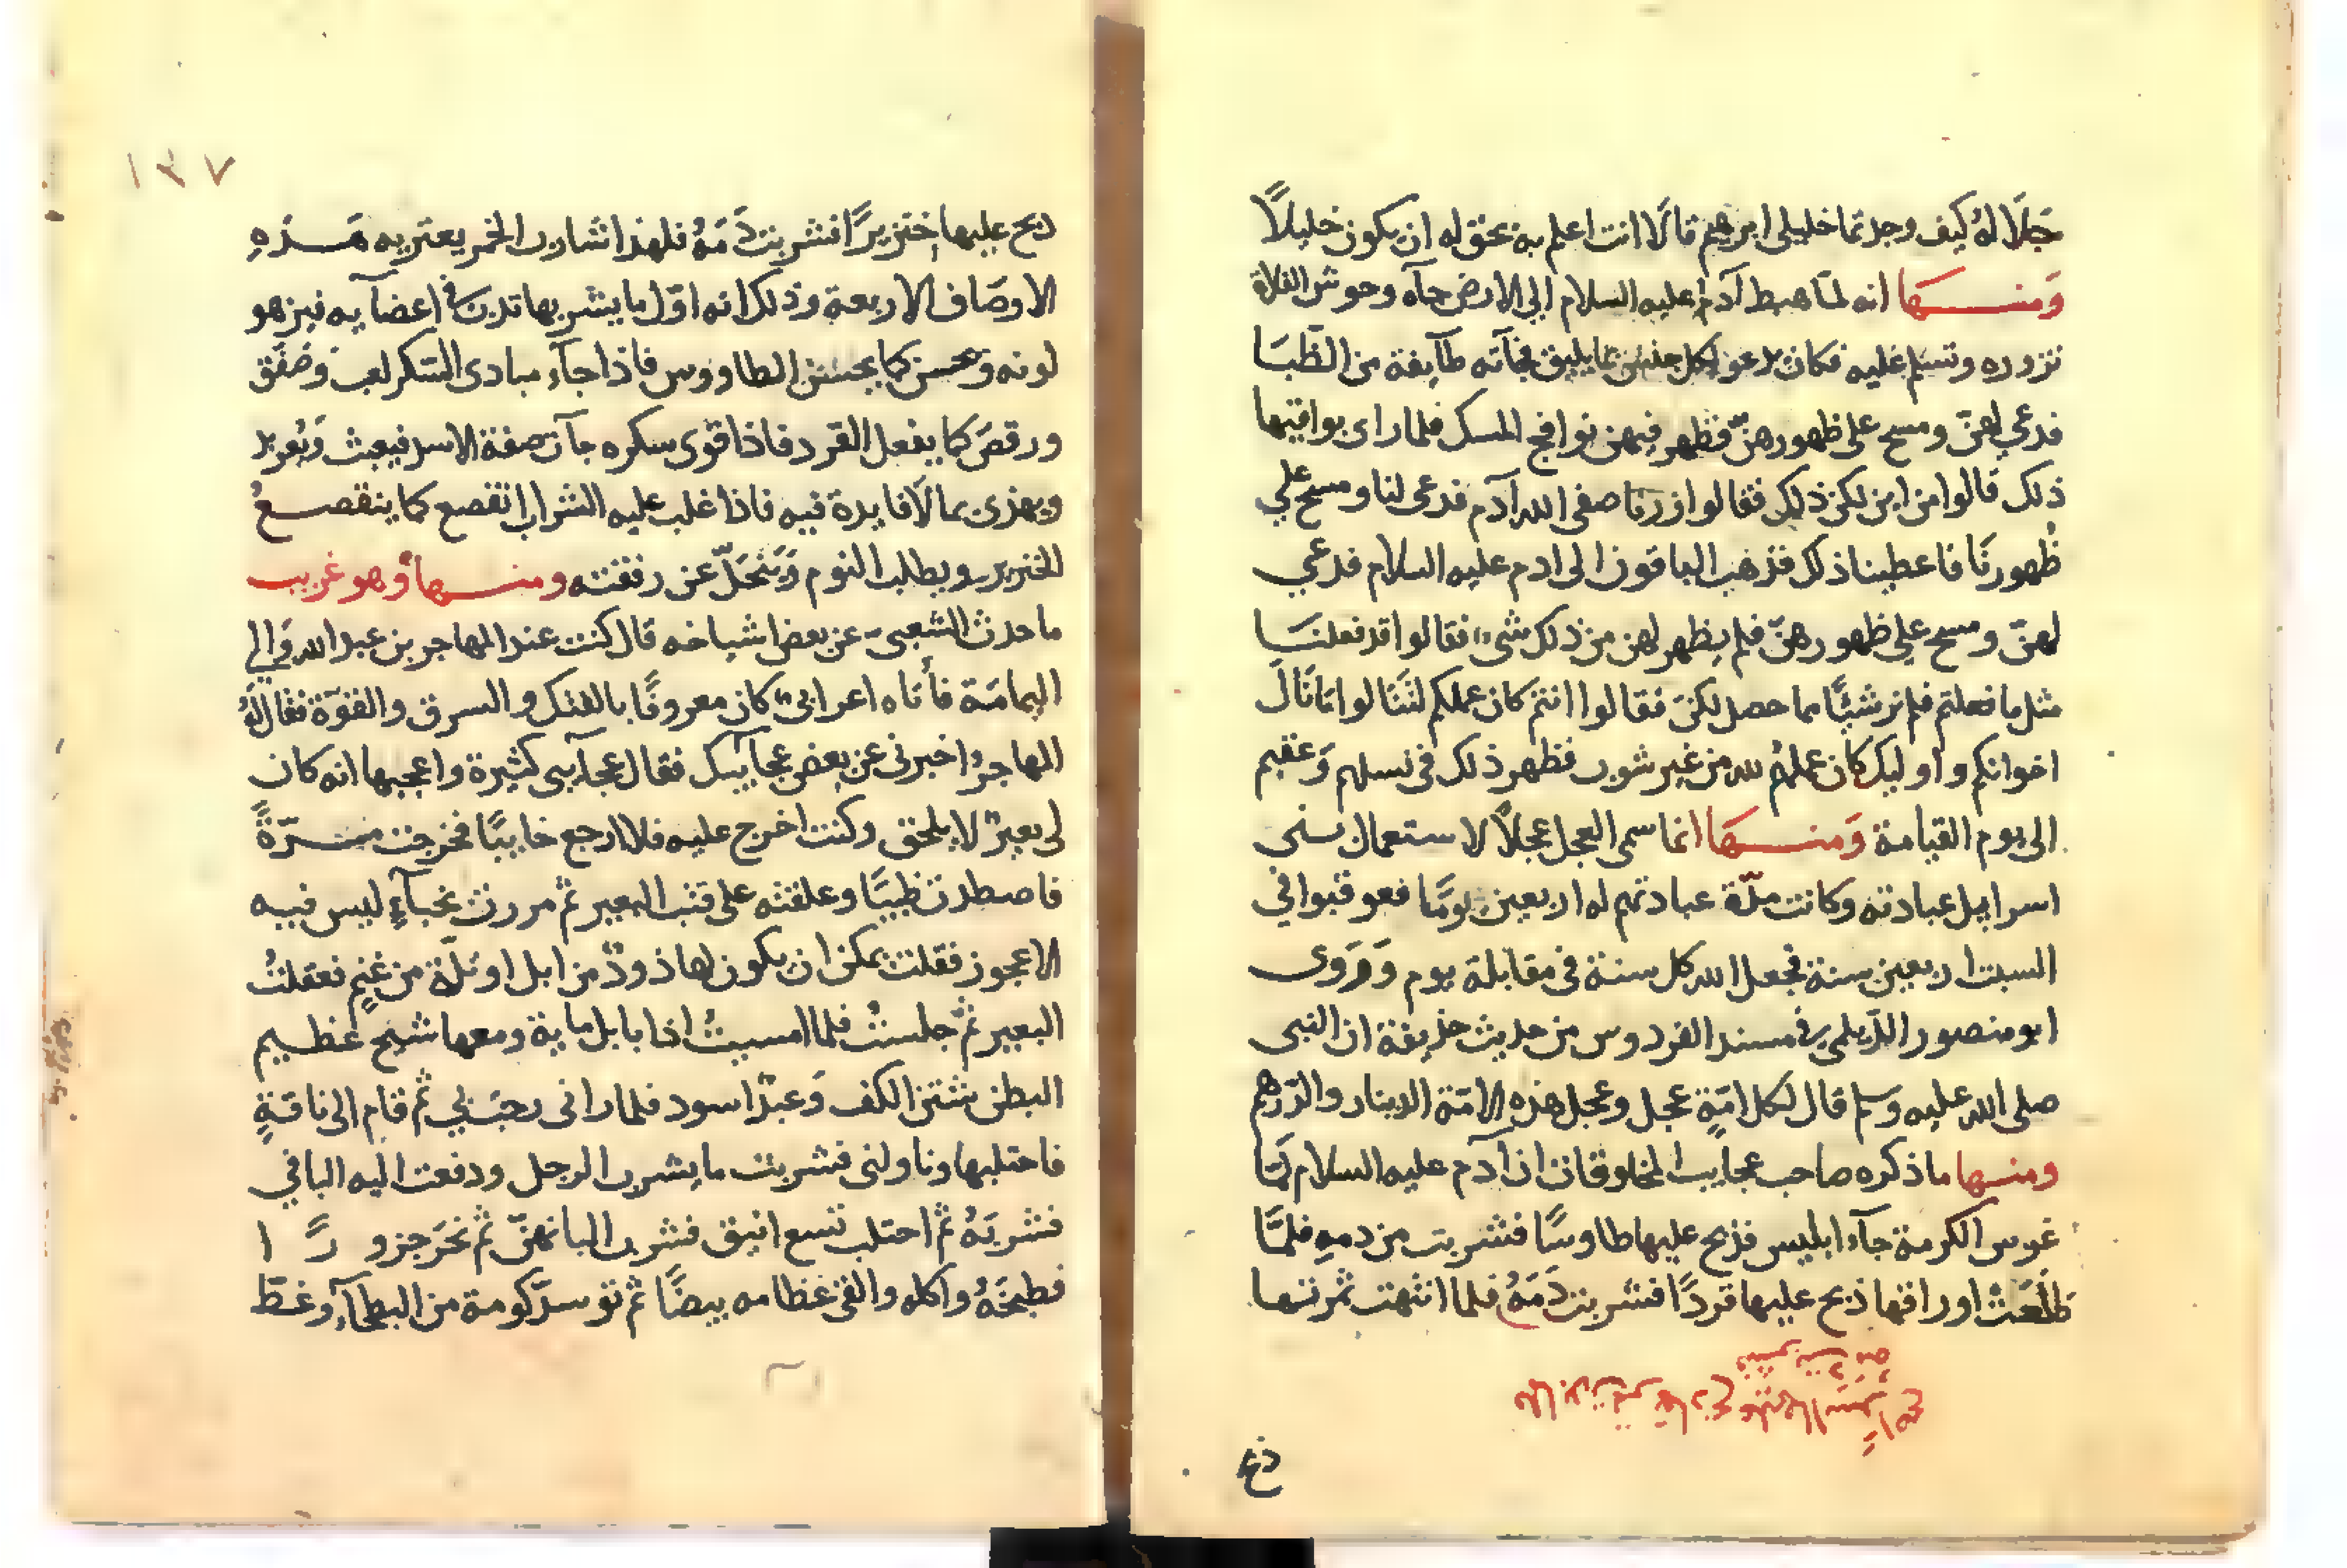 جَلَا لهُ كيف وجدتما خليلى ابرهيم قالَا انت اعلم به بحق له ان يكون خليلًا
وَمنها انه لما هبط آدم عليه السلام الى الارض جآه وحوش الفلاة
تزوره وتسلم عليه فكان يدعو لكل جنس بما يليق به فجآته طآيفة من الظبا
فدعى لهنّ ومسح على ظهورهنّ فظهر فيهن نوافج المسك فلما راى بواقيها
ذلك قالوا من اين لكن ذلك فقالوا زرنا صفى الله آدم فدعى لنا ومسح على
ظُهورنَا فاعطينا ذلك فذهب الباقون الى ادم عليه السلام فدعى
لهنّ ومسح على ظهورهنّ فلم يظهر لهن من ذلك شىء فقالوا قد فعلنا
مثل ما فعلتم فلم نر شيئًا مما حصل لكن فقالوا انتم كان عملكم لتنالوا ما نال
اخوانكم واوليك كان عملهُم لله من غير شوب فظهر ذلك فى نسلهم وَعقبهم
الى يوم القيامة وَمنها انما سمى العجل عجلًا لاستعمال بنى
اسرايل عبادته وكانت مدّة عبادتهم له اربعين يومًا فعوقبوا فى
السبت اربعين سنة فجعل الله كل سنة فى مقابلة يوم وَرَوى
ابو منصور الدّيلمى فى مسند الفردوس من حديث حذيفة ان النبى
صلى الله عليه وسلم قال لكل امّةٍ عجل وعجل هذه الامّة الدينار والدّرهم
ومنها ما ذكره صاحب عجايب المخلوقات ان آدم عليه السلام لمّا
غرس الكرمة جآء ابليس فذبح عليها طاوسًا فشربت من دمهِ فلمّا
طلَعَت اوراقها ذبح عليها قردًا فشربت دَمَهُ فلما انتهت ثمرتها
ذبح
١٣٧
ذبح عليها خنزيرًا فشربت دَمَهُ فلهذا شارب الخمر يعتريه هَذهِ
الاوصَاف الاربعة وذلك انه اوّل ما يشربها تدبّ فى اعضآيه فيزهو
لونه ويحسن كما يحسن الطاووس فاذا جآء مبادى السّكر لعب وَصَفّق
ورقصَ كما يفعل القرد فاذا قوى سكره جآت صفة الاسد فيعبث وَيُعربد
ويهذى بما لَا فايدة فيه فاذا غلب عليه الشراب انقصع كما ينقصعُ
الخنزير ويطلب النوم وَيَنحَلّ عن رفقته ومنها وهو غريب
ما حدث الشعبىّ عن بعض اشياخه قال كنت عند المهاجر بن عبد الله وَالى
اليمامَة فأتاه اعرابىّ كان معروفًا بالفتك والسرق والفتوّة فقال لهُ
المهاجرُ اخبرنى عن بعض عجآيبك فقال عجآيبى كثيرة واعجبها انه كان
لى بعيرٌ لا يلحق وكنت اخرج عليه فلا ارجع خايبًا فخرجت مرّةً
فاصطدت ظبيًا وعلقته على قتب البعير ثم مررت بخبآءٍ ليس فيه
الا عجوز فقلت يمكن ان يكون لها ذودٌ من ابل او ثلّة من غنمٍ فعقلتُ
البعير ثمّ جلستُ فلما امسيتُ اذا بابل ماية ومعها شيخ عظيم
البطن شثن الكف وَعبدٌ اسود فلما رانى رحبَ بى ثم قام الى ناقةٍ
فاحتلبها وناولنى فشربت ما يشرب الرجل ودفعت اليه الباقى
فشربَهُ ثم احتلب تسع اينق فشرب البانهنّ ثم نحَر جزورًا
فطبخَهُ واكله والقى عظامه بيضًا ثم توسدّ كومة من البطحآء وغطّ